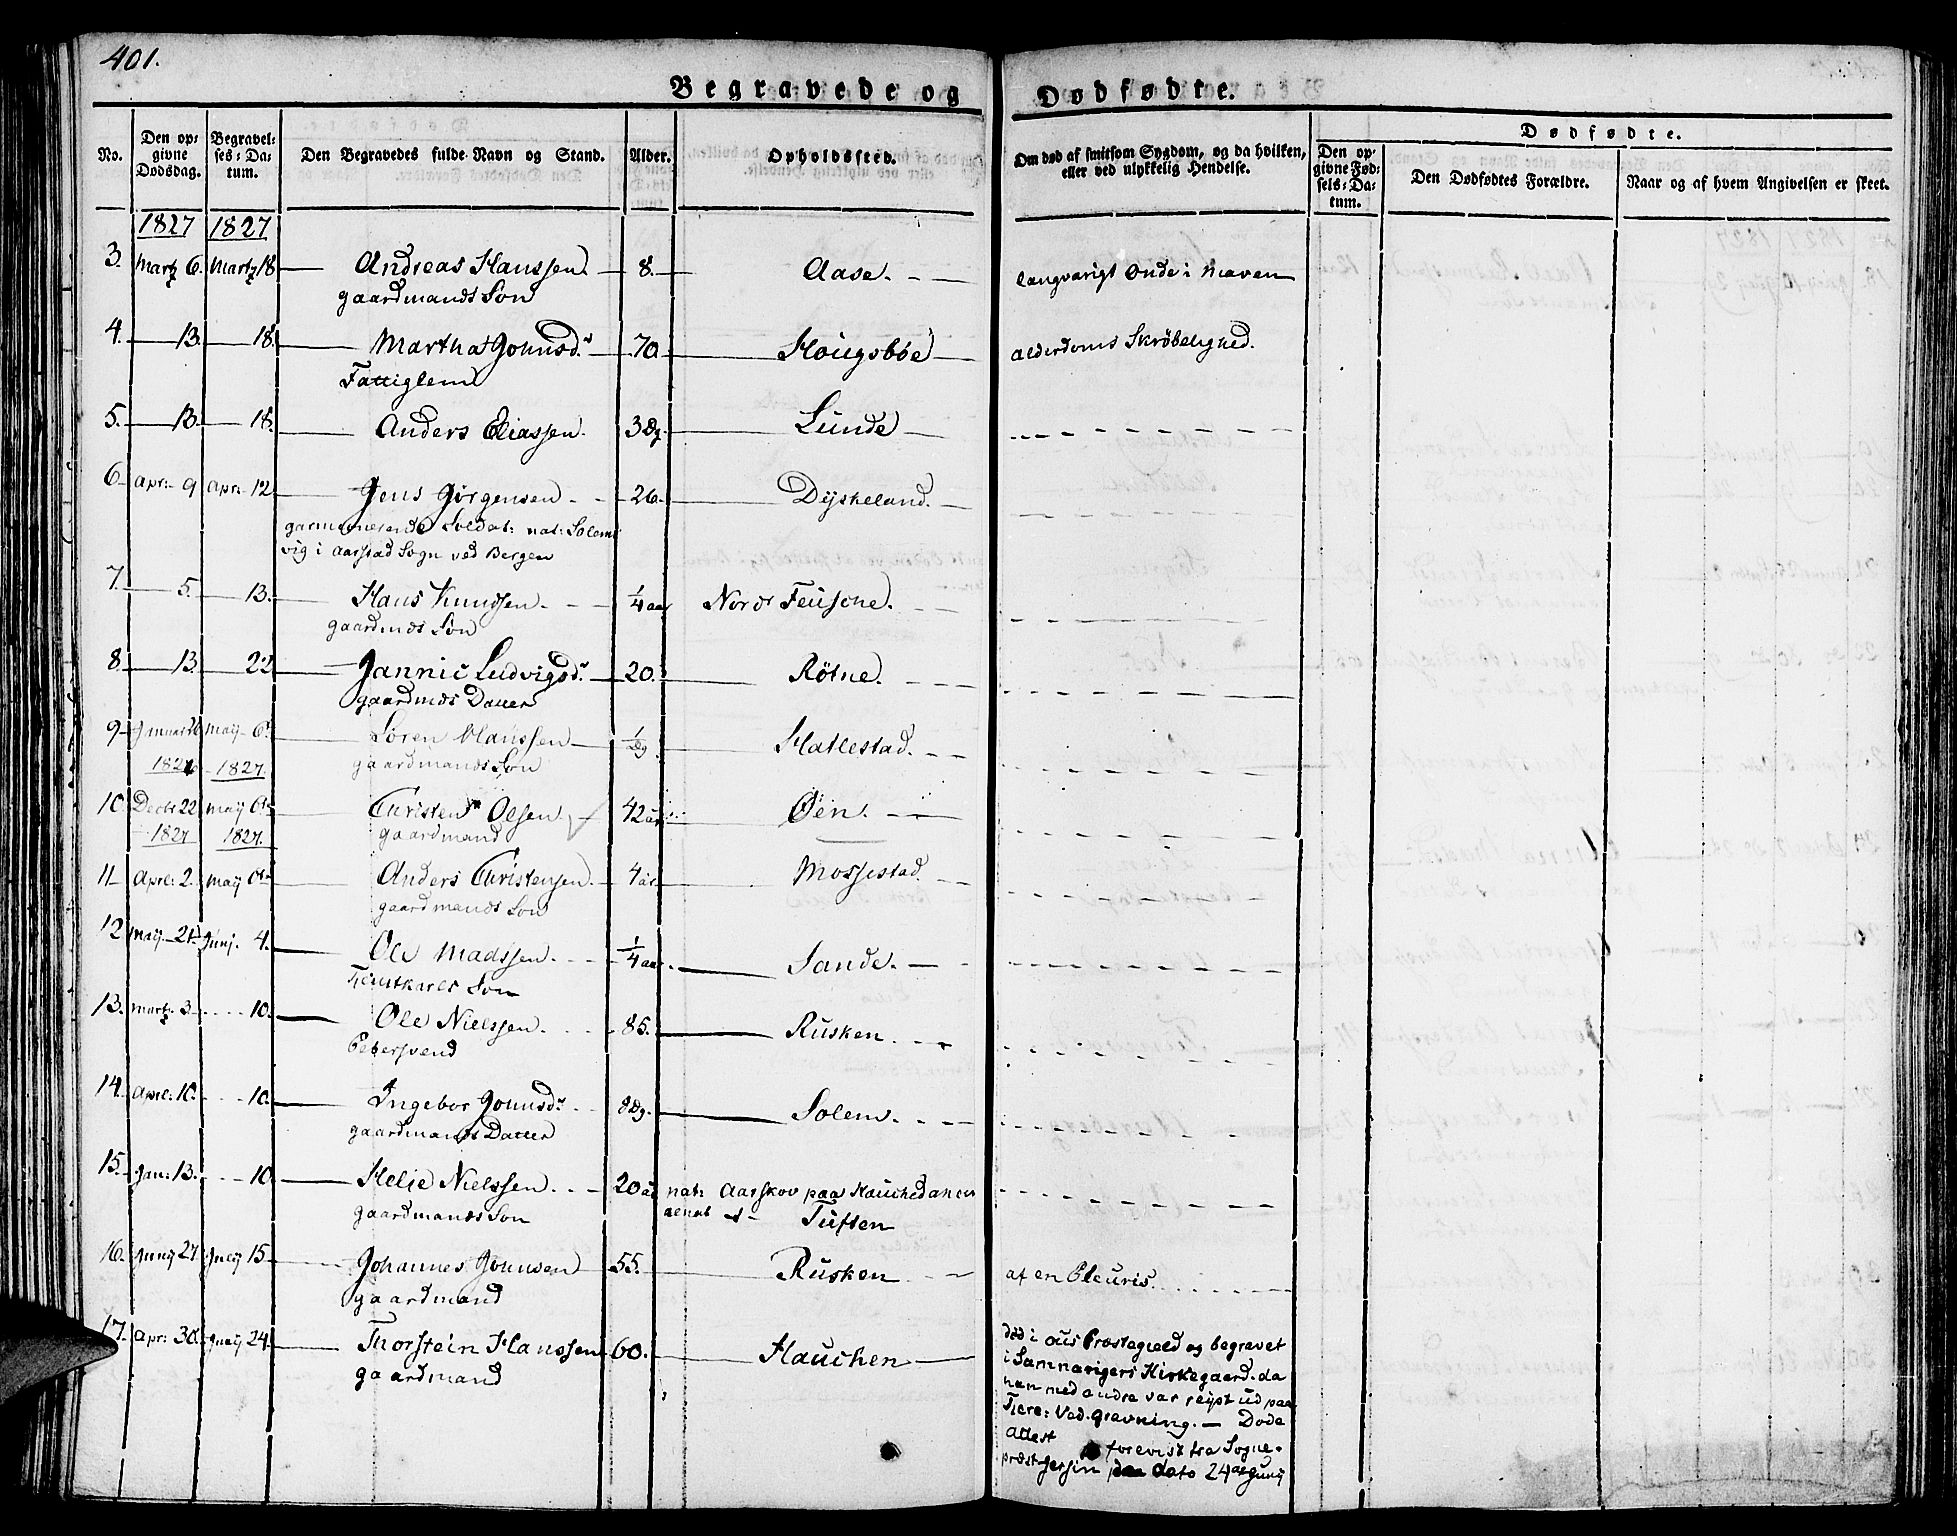 401.
Begravede og Dødfødte.
No.
Den opgivne Dødsdag.
Begravelses-Datum.
Den Begravedes fulde Navn og Stand.
Alder.
Opholdssted.
Om død af smitsom Sygdom, og da hvilken, eller ved ulykkelig Hendelse.
Dødfødte.
Den opgivne Fødsels-Datum.
Den Dødfødtes Forældre.
Naar og af hvem Angivelsen er skeet.
1827 1827
3. Martz 6. Martz 18 Andreas Hanssen. 8. Aase. langvarigt Onde i Maven
gaardmands Søn
4. 13. 18. Martha Johnsd. 70 Hougsbøe alderdoms Skrøbelighed.
Fattiglem
5. 13. 18. Anders Eliassen. 3 Dg. Lunde
6. Apr: 9 Apr: 12 Jens Jørgensen 26. Dyskeland.
garnisonerende Soldat: nat: Solem
vig i Aarstad Sogn ved Bergen
7. 5. 13. Hans Knudsen. 1/4 aar Nordr Feusche.
gaardmds Søn
8. 13. 22 Jannic Ludvigsd. 20. Røtne.
gaardmds Datter
9 Januar 26 May 6. Søren Hanssen 1/2 Dg. Hatlestad.
gaardmands Søn
1826 1827.
10. Decbr 22 May 6. Christen Olsen. 42 aar Øen.
1827 1827. gaardmand
11 Apr: 2. May 6. Anders Christensen. 4 år. Mossestad.
gaardmands Søn
12 May 21. Junj. 4. Ole Madssen. 1/4 aar. Sande.
Tienstkarls Søn
13. Martz 3. 10. Ole Nielssen. 85. Rusken
Pebersvend
14. Apr: 10. 10. Ingebor Johnsd. 8 Dg. Solem.
gaardmands Datter
15. Jan: 13. 10. Helje Nielssen. 20 år nat: Aarskov paa Hauchedahlen
gaardmands Søn Tuften
16. Juny 27 July 15 Johannes Johnsen 55. Rusken af en Pleuris.
gaardmand
17. Apr: 30. July 24. Thorstein Hanssen 60. Hauchen
gaardmand
død i Præstegield og begravet
i Samnangers Kirkegaard. da
han med andre var reyst ud paa
Ved. Døde
Attest forevist fra Sogne-
præst dato 24 Juny